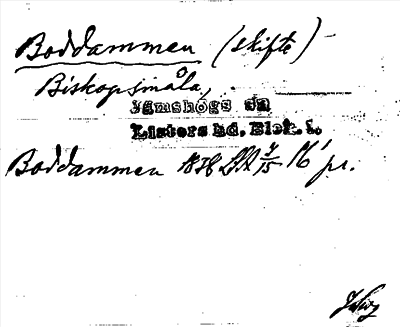 Boddammen (skifte)
Biskopsmåla,
Jämshögs sn
Listers hd, Blek. l.
Boddammen 1878 16 pr.